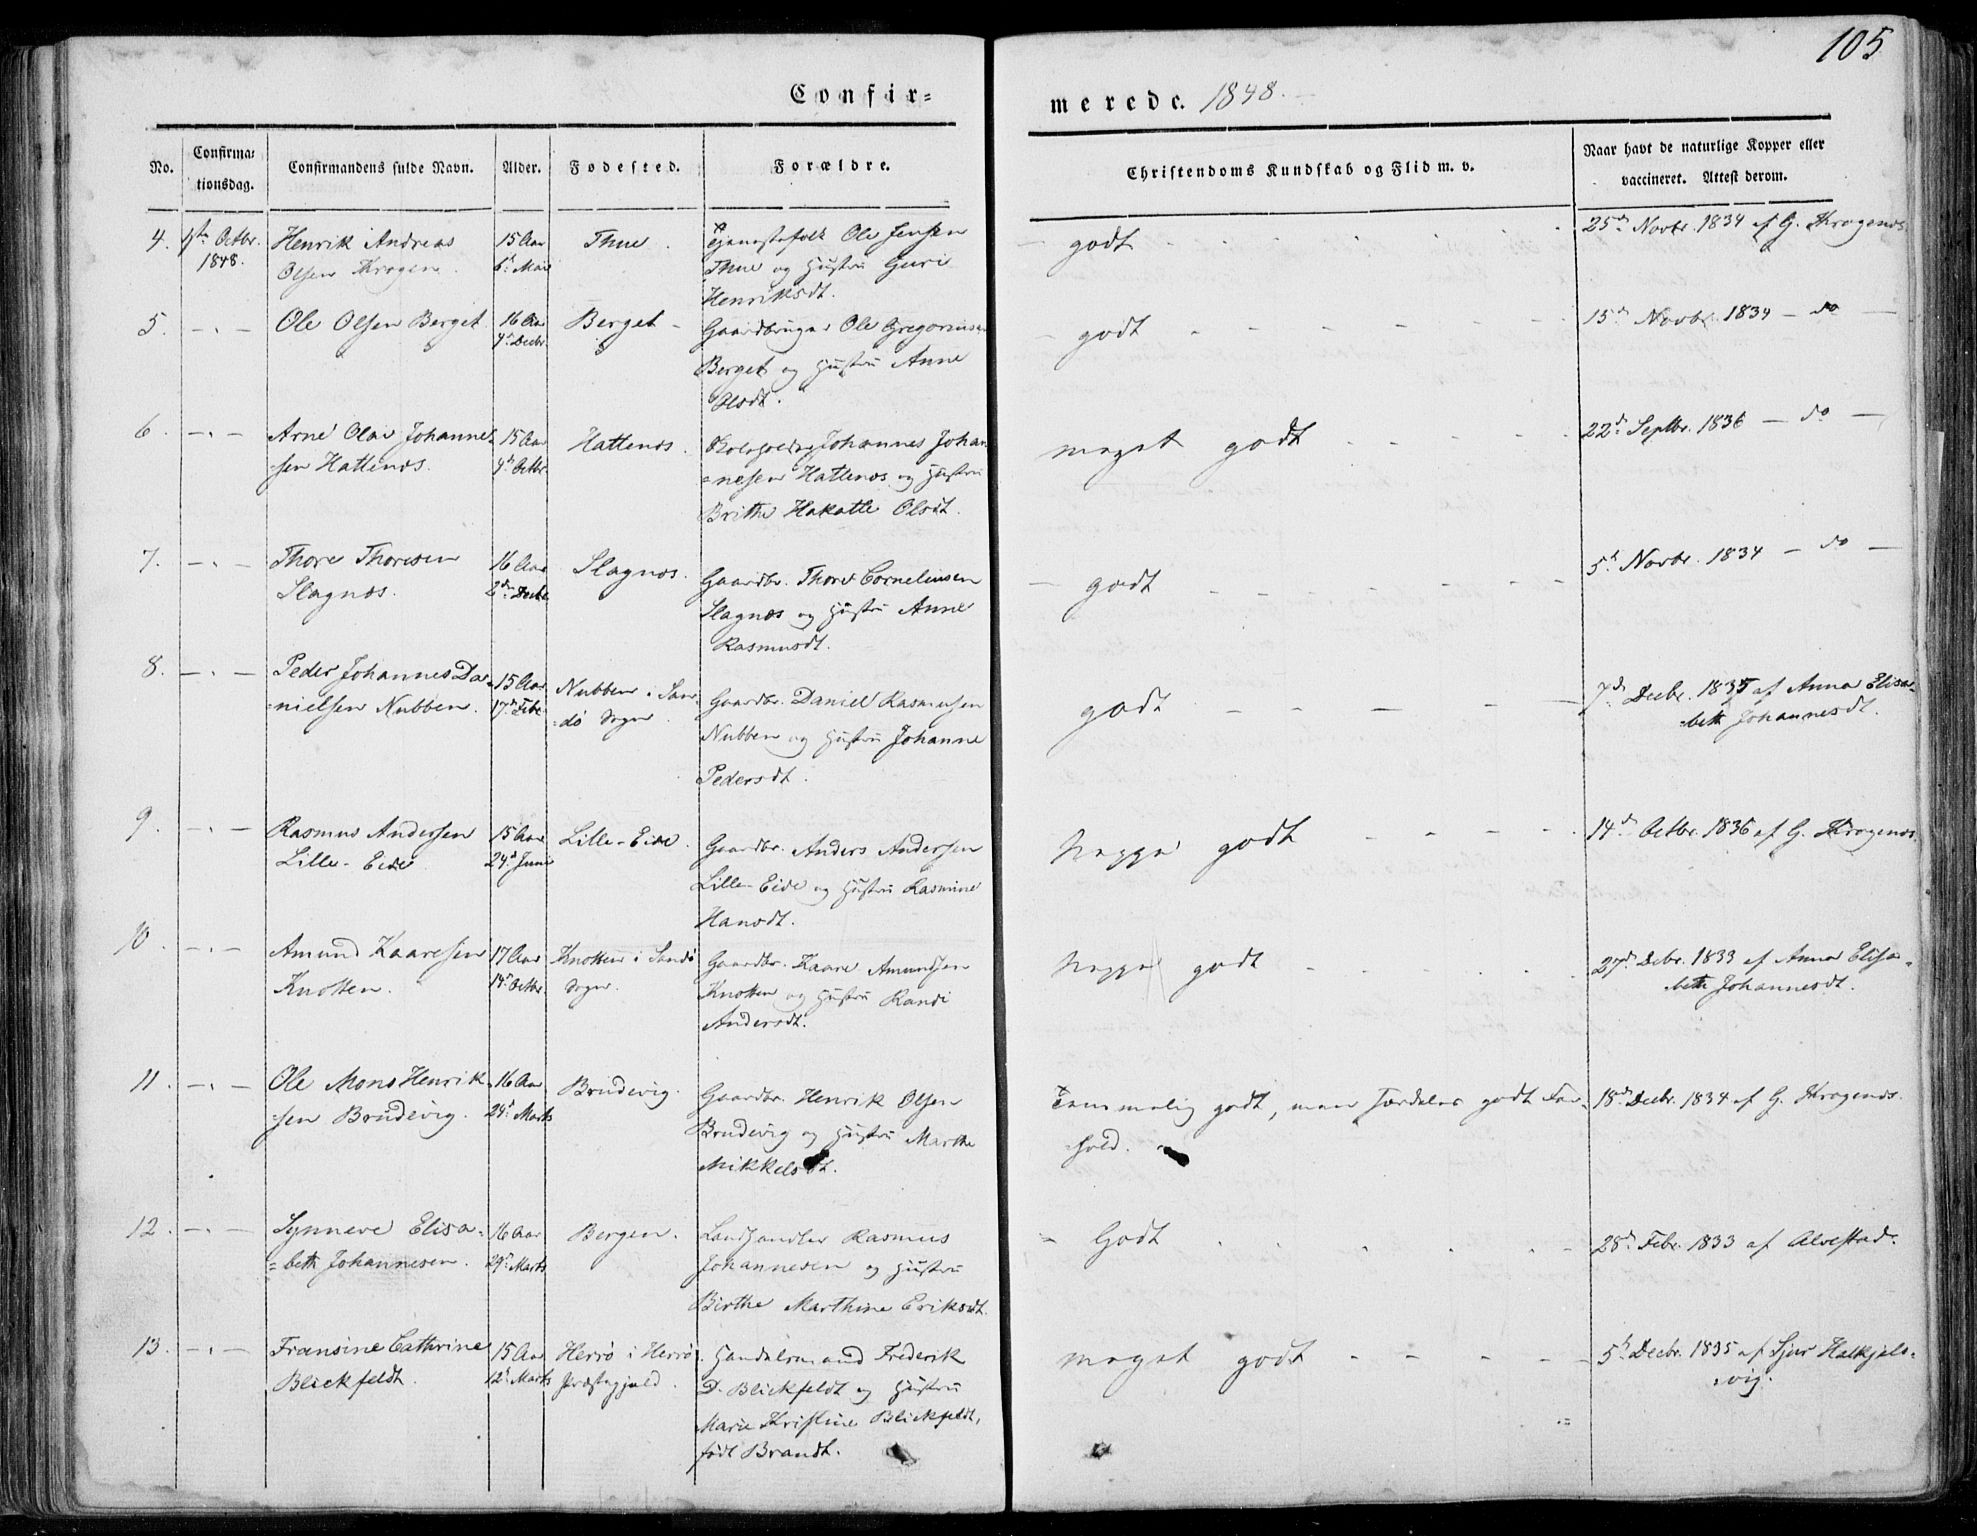 105
Confir=
merede. 1848.
No.
Confirma=
tionsdag.
Confirmandens fulde Navn.
Alder.
Fødested.
Forældre.
Christendoms Kundskab og Flid m. v.
Naar havt de naturlige Kopper eller
vaccineret. Attest derom.
4. 1ste Octbr. Henrik Andreas 15 Aar Thue. Tjenestefolk Ole Jensen - godt 25de Novbr. 1834 af G. Krogenæs.
1848. Olsen Krogen. 6te Mai Thue og Hustru Guri
Henriksdt.
5. -"- Ole Olsen Berget 16 Aar Berget - Gaardbruger Ole Gregoriusen - godt 15de Novbr. 1834 - do -
4de Decbr. Berget og Hustru Anne
Olsdt.
6. -"- Arne Olai Johanne- 15 Aar Hattenæs. Johannes Johan- meget godt 22de Septbr. 1836 - do -
sen Hattenæs. 4de Octbr. =nesen Hattenæs og Hustru
Brithe Olsdt.
7. -"- Thore Thoresen 16 Aar Slagnæs. Gaardbr. Thore Corneliusen - godt 5te Novbr. 1834 - do -
Slagnæs. 2den Decbr. Slagnæs og Hustru Anne
Rasmusdt.
8. -"- Peder Johannes Da- 15 Aar Nubben i San- Gaardbr. Daniel Rasmusen godt 7de Decbr. 1835 af Anna Elisa-
=nielsen Nubben. 17de Febr. =dø Sogn. Nubben og Hustru Johanne beth Johannesdt.
Pedersdt.
9. -"- Rasmus Andersen 15 Aar Lille-Eide. Gaardbr. Anders Andersen Neppe godt 14de Octbr. 1836 af G. Krogenæs.
Lille-Eide. 24de Juni Lille-Eide og Hustru Rasmine
Hansdt.
10. -"- Amund Kaaresen 17 Aar Knotten i Sandø Gaardbr. Kaare Amundsen Neppe godt 27de Decbr. 1833 af Anna Elisa=
Knotten. 14de Octbr. Sogn. Knotten og Hustru Randi beth Johannesdt.
Andersdt.
11. -"- Ole Mons Henrik- 16 Aar Brudevig. Gaardbr. Henrik Olsen Temmelig godt, men særdeles godt For- 18de Decbr. 1834 af G. Krogenæs.
sen Brudevig. 24de Marts Brudevig og Hustru Marthe hold.
Mikkelsdt.
12. -"- Synneve Elisa= 16 Aar Bergen. Landhandler Rasmus - Godt 28de Febr. 1833 af Alvestad.
=beth Johannesen. 29de Marts Johannesen og Hustru
Birthe Marthine Eriksdt.
13. -"- Fransine Cathrine 15 Aar Herrø i Herrø Handelsmand Frederik meget godt 5te Decbr. 1835 af Sjur Halkjels=
Blickfeldt. 12te Marts Præstegjeld. D. Blickfeldt og Hustru =vig.
Marie Kristine Blickfeldt,
født Brandt.